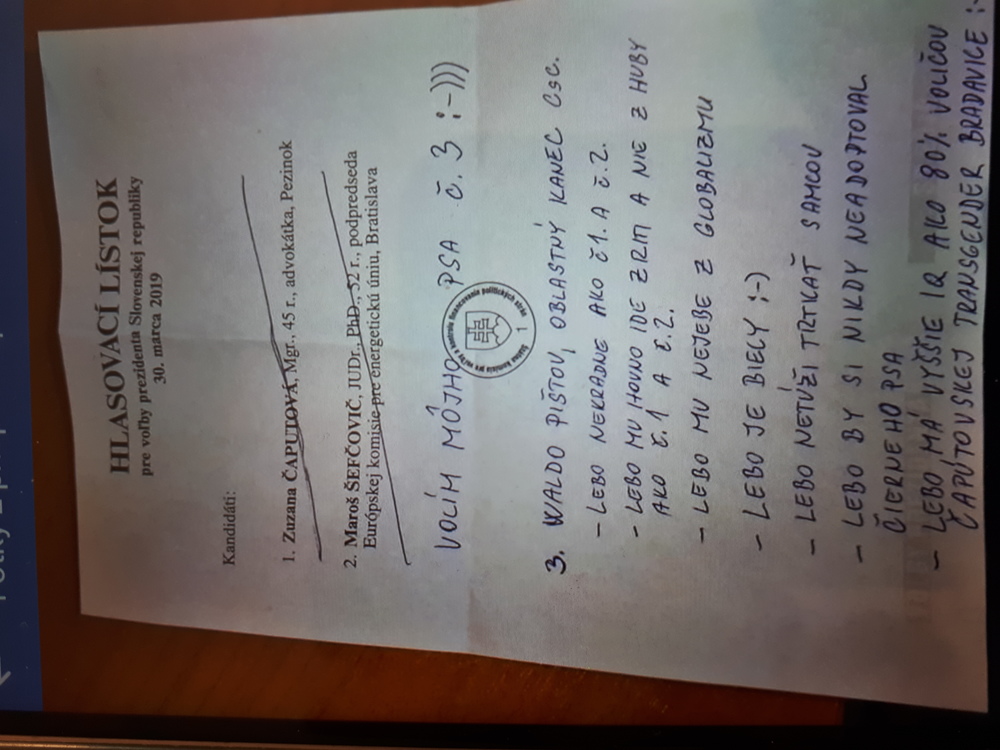 HLASOVACÍ LÍSTOK
pre voľby prezidenta Slovenskej republiky
30. marca 2019
Kandidáti:
1. Zuzana ČAPUTOVÁ, Mgr., 45 r., advokátka, Pezinok
2. Maroš ŠEFČOVIČ, JUDr., PhD., 52 r., podpredseda
Európskej komisie pre energetickú úniu, Bratislava
VOLÍM MÔJHO PSA Č. 3 :-)))
3. WALDO PIŠTOV, OBLASTNÝ KANEC CSC.
- LEBO NEKRADNE AKO Č1. A Č.2.
- LEBO MU HOVNO IDE Z RITI A NIE Z HUBY
AKO Č.1 A Č.2.
- LEBO MU NEJEBE Z GLOBALIZMU
- LEBO JE BIELY ;-)
- LEBO NETÚŽI TRTKAŤ SAMCOV
- LEBO BY SI NIKDY NEADOPTOVAL
ČIERNEHO PSA
- LEBO MÁ VYŠŠIE IQ AKO 80% VOLIČOV
ČAPÚTOVSKEJ TRANSGENDER BRADAVICE :-